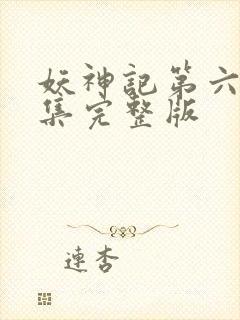 妖神記第六
集完整版
連杏